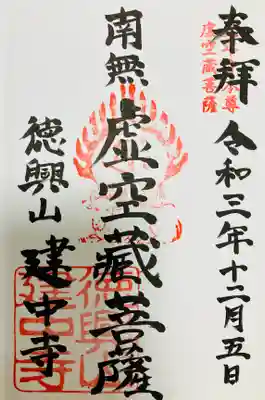 奉拝 令和三年十二月五日
虚空蔵菩薩
南無虚空蔵菩薩
徳興山 建中寺
徳興山
建中寺